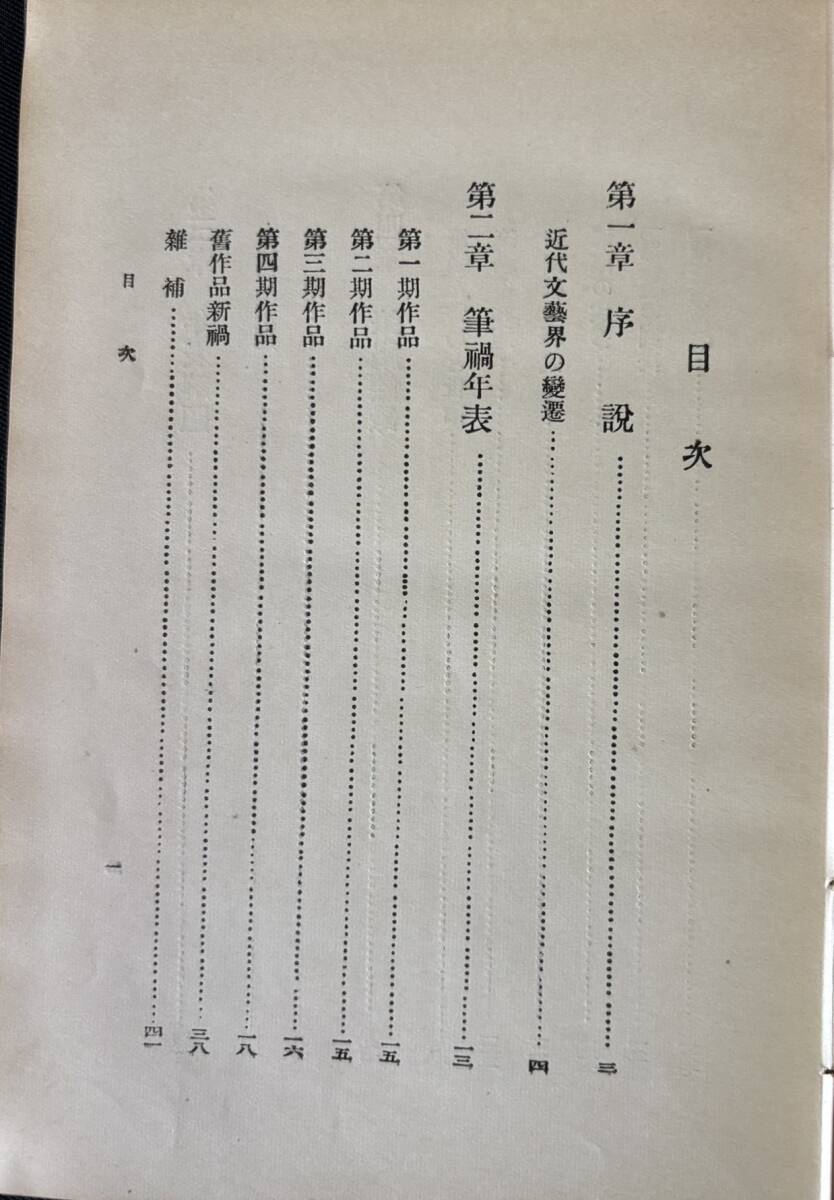 目次
第一章 序說……三
近代文藝界の變遷……四
第二章 筆禍年表……一三
第一期作品……一五
第二期作品……一五
第三期作品……一六
第四期作品……一八
舊作品新禍……三八
雜補……四一
目次
一